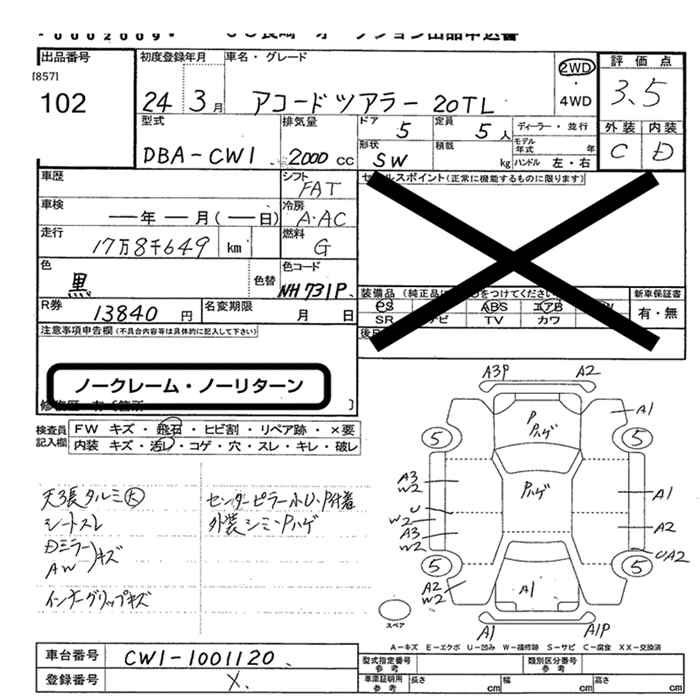 -0002009-
出品番号
[857]
102
初度登録年月
24 3月
車名・グレード
アコードツアラー 20TL
2WD
・
4WD
評価点
3.5
外装 内装
C D
型式
DBA-CW1
排気量
2000 CC
ドア
5
定員
5人
ディーラー・並行
形状
SW
積載
kg
モデル年式 年
ハンドル 左・右
車歴
シフト
FAT
車検
年 月( 日)
冷房
A・AC
走行
17万8千649 km
燃料
G
色
黒
色替
色コード
NH731P
R券
13840 円
名変期限
月 日
セールスポイント(正常に機能するものに限ります)
装備品
ABS エアB
SR ナビ TV カワ
新車保証書
有・無
注意事項申告欄(不具合内容等は具体的に記入して下さい)
ノークレーム・ノーリターン
検査員
記入欄
FW キズ・飛石・ヒビ割・リペア跡・×要
内装 キズ・汚レ・コゲ・穴・スレ・キレ・破レ
天張タルミ大
シートスレ
Dミラー キズ
AW
インナーグリップキズ
センターピラー小U・P付着
外装シミ・Pハゲ
A3P A2
A1
P
Pハゲ
5 5
A3
W2
Pハゲ
A1
U
W2
A3
W2
A2
UA2
5 5
A2
W2
A1
A1 A1P
スペア
A-キズ E-エクボ U-凹み W-補修跡 S-サビ C-腐食 XX-交換済
車台番号
CW1-1001120
登録番号
X
型式指定番号
参考
類別区分番号
参考
車庫証明用
参考
長さ cm 幅 cm 高さ cm